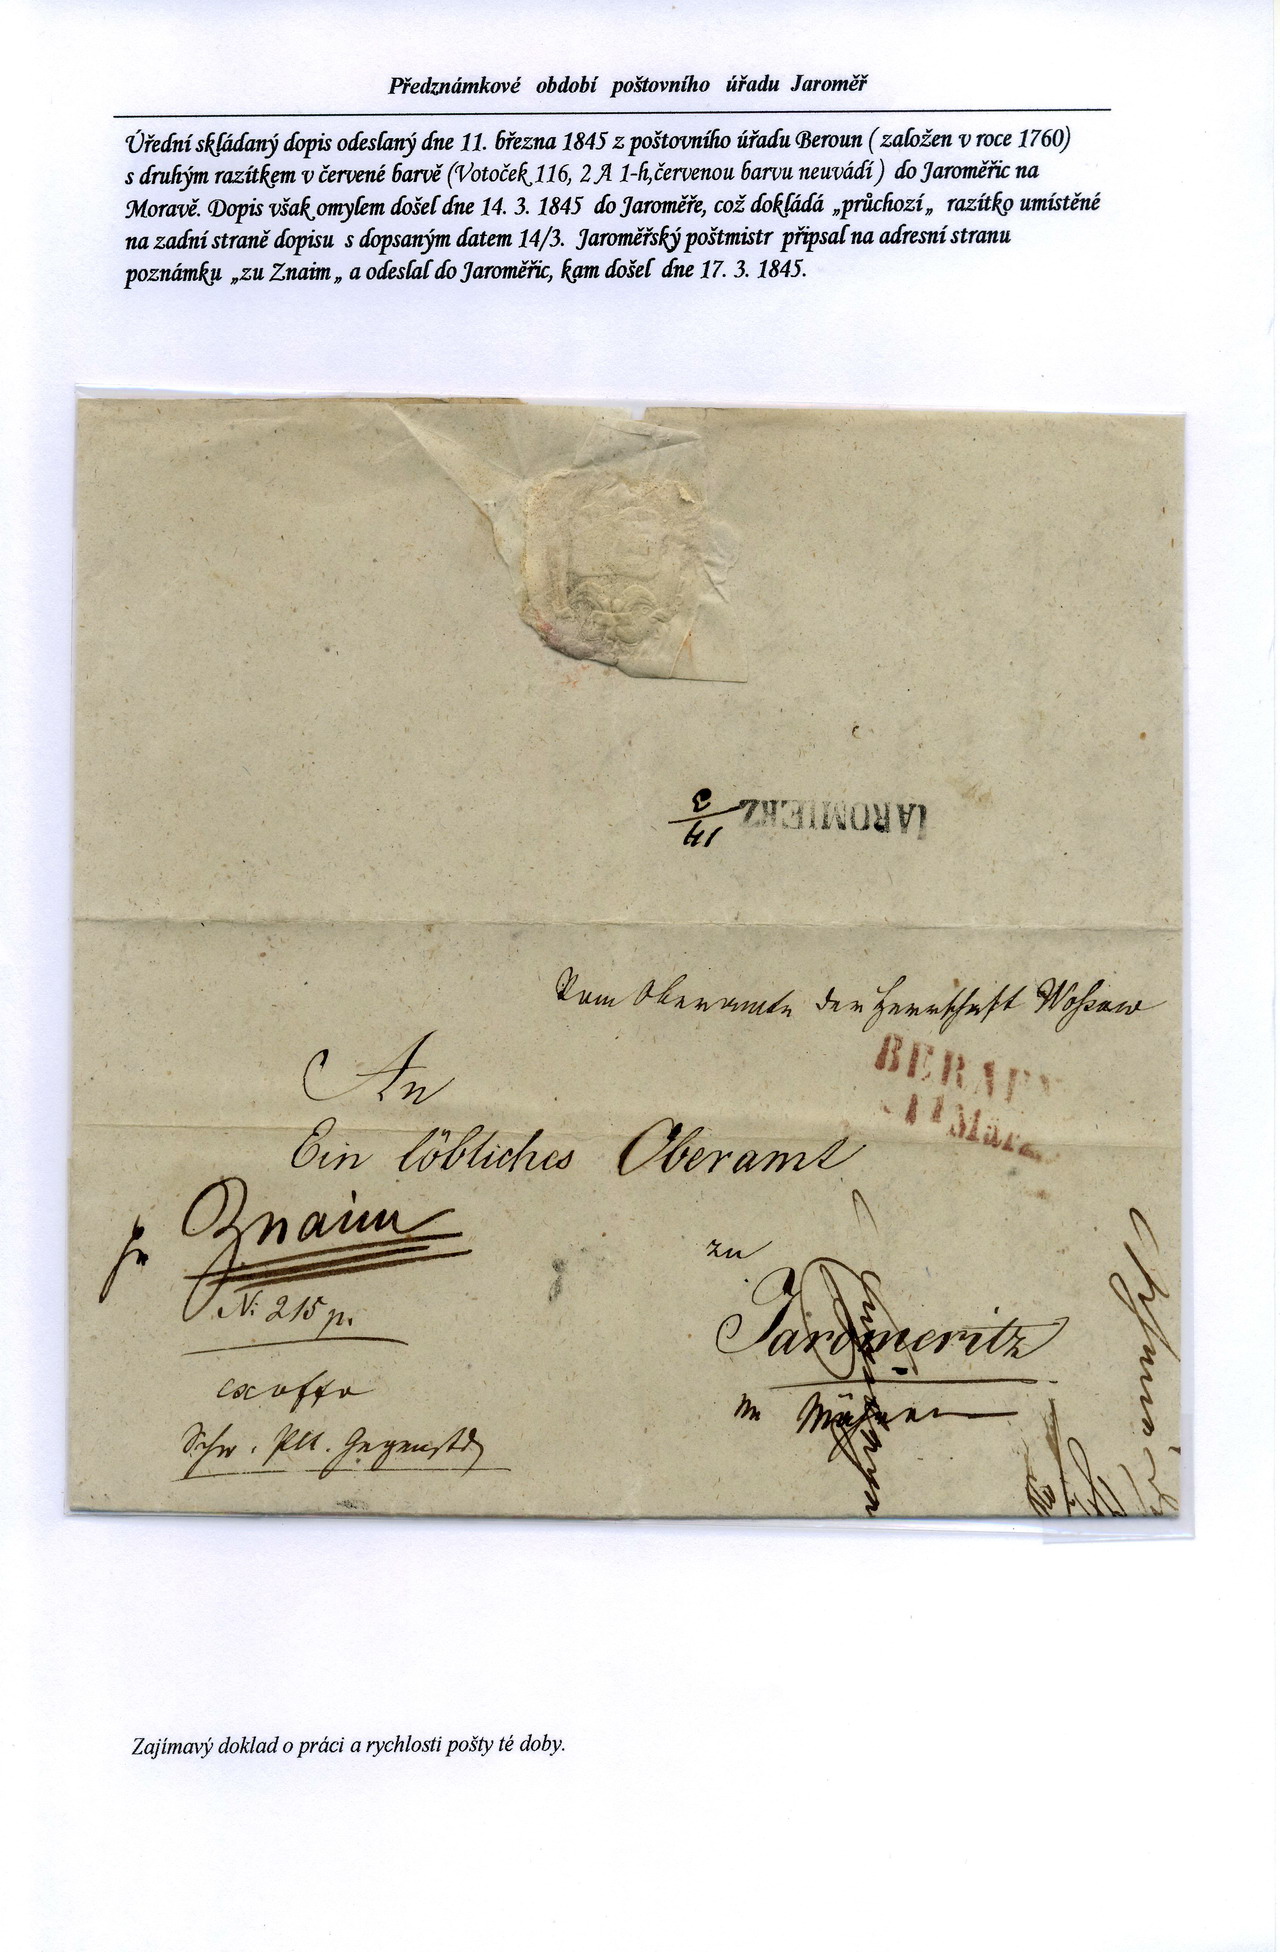 Předznámkové období poštovního úřadu Jaroměř
Úřední skládaný dopis odeslaný dne 11. března 1845 z poštovního úřadu Beroun ( založen v roce 1760)
s druhým razítkem v červené barvě (Votoček 116, 2 A 1-h,červenou barvu neuvádí ) do Jaroměřic na
Moravě. Dopis však omylem došel dne 14. 3. 1845 do Jaroměře, což dokládá „průchozí„ razítko umístěné
na zadní straně dopisu s dopsaným datem 14/3. Jaroměřský poštmistr připsal na adresní stranu
poznámku „zu Znaim„ a odeslal do Jaroměřic, kam došel dne 17. 3. 1845.
IAROMIERZ
14/3
Vom Oberamte der Herrschaft Wossow
BERAUN
11 März
An
Ein löbliches Oberamt
Znaim
zu
N: 215 p.
Jaromeritz
exoffo
in Mähren
Zajímavý doklad o práci a rychlosti pošty té doby.